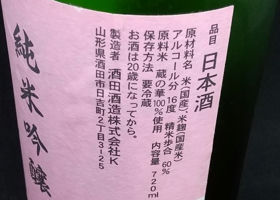 品目 日本酒
原材料名 米(国産)、米麹(国産米)
アルコール分 16度 精米歩合 60%
原料米 蔵の華100%使用 内容量 720ml
保存方法 要冷蔵
お酒は20歳になってから。
製造者 酒田酒造株式会社K
山形県酒田市日吉町2丁目3-25
純米吟醸